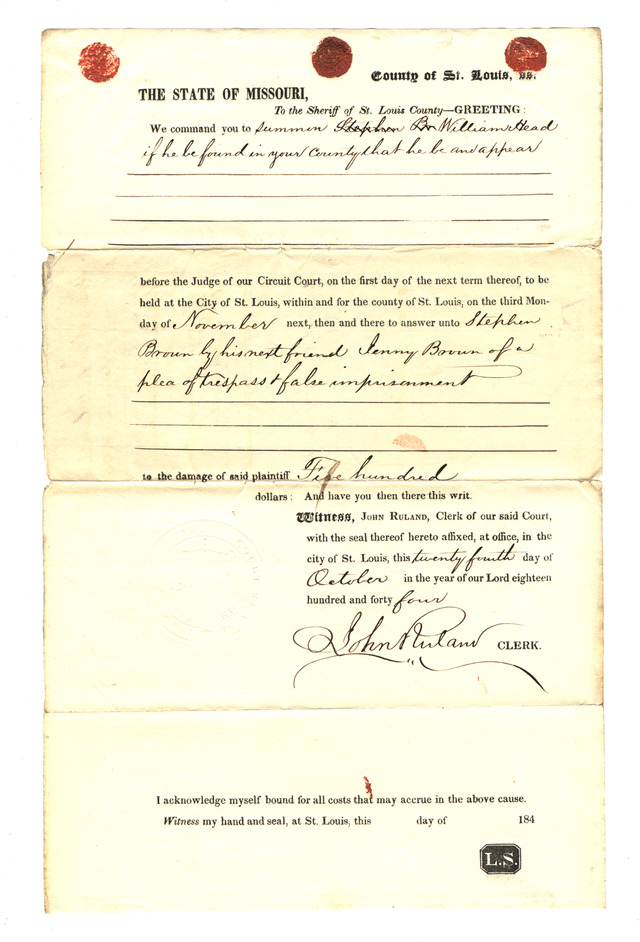 County of St. Louis, ss.
THE STATE OF MISSOURI,
To the Sheriff of St. Louis County—GREETING:
We command you to summon Stephen Br William Head
if he be found in your County that he be and appear
before the Judge of our Circuit Court, on the first day of the next term thereof, to be
held at the City of St. Louis, within and for the county of St. Louis, on the third Mon-
day of November next, then and there to answer unto Stephen
Brown by his next friend Jenny Brown of a
plea of trespass & false imprisonment
to the damage of said plaintiff Five hundred
dollars: And have you then there this writ.
Witness, JOHN RULAND, Clerk of our said Court,
with the seal thereof hereto affixed, at office, in the
city of St. Louis, this twenty fourth day of
October in the year of our Lord eighteen
hundred and forty four
John Ruland CLERK.
I acknowledge myself bound for all costs that may accrue in the above cause.
Witness my hand and seal, at St. Louis, this day of 184
L.S.